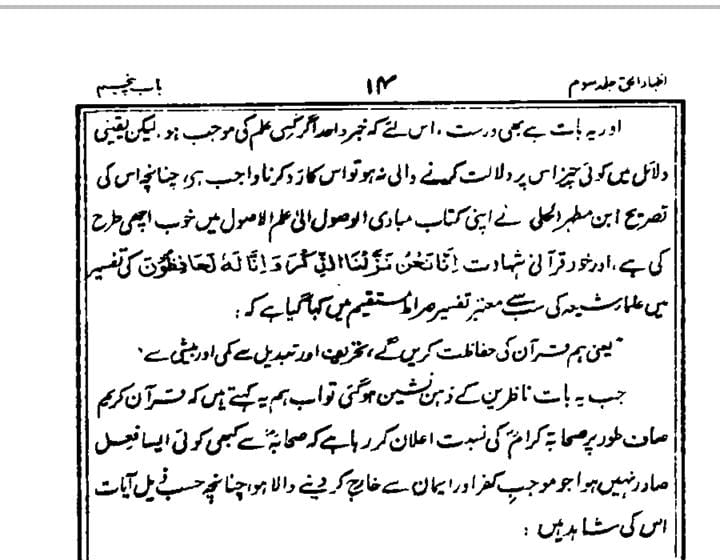 اظہار الحق جلد سوم ۱۴ باب پنجم
اور یہ بات ہے بھی درست، اس لئے کہ خبر واحد اگر کسی علم کی موجب ہو، لیکن یقینی
دلائل میں کوئی چیز اس پر دلالت کرنے والی نہ ہو تو اس کا رد کرنا واجب ہے، چنانچہ اس کی
تصریح ابن مطہر الحلی نے اپنی کتاب مبادی الوصول الی علم الاصول میں خوب اچھی طرح
کی ہے، اور خود قرآنی شہادت اِنَّا نَحْنُ نَزَّلْنَا الذِّكْرَ وَ اِنَّا لَهٗ لَحَافِظُوْنَ کی تفسیر
میں علماء شیعہ کی سب سے معتبر تفسیر صراط مستقیم میں کہا گیا ہے کہ:
"یعنی ہم قرآن کی حفاظت کریں گے، تحریف اور تبدیل سے کمی اور بیشی سے"
جب یہ بات ناظرین کے ذہن نشین ہو گئی تو اب ہم یہ کہتے ہیں کہ قرآن کریم
صاف طور پر صحابہ کرامؓ کی نسبت اعلان کر رہا ہے کہ صحابہؓ سے کبھی کوئی ایسا فعل
صادر نہیں ہوا جو موجب کفر اور ایمان سے خارج کر دینے والا ہو، چنانچہ حسب ذیل آیات
اس کی شاہد ہیں: